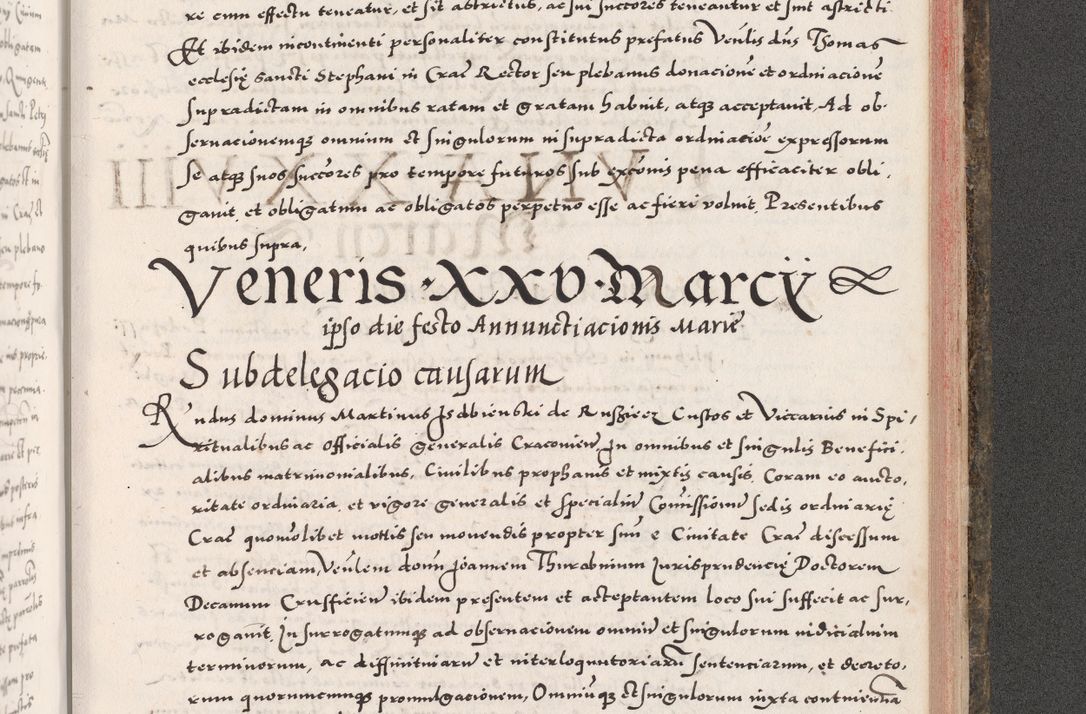 re cum effectu teneatur, et sit astrictus, ac sui succores teneantur et sint astricti.
Et ibidem incontinenti personaliter constitutus prefatus Venlis dns Thomas
ecclesię sancti Stephani in Crac Rector seu plebanus donacionē et ordinacionē
supradictam in omnibus ratam et gratam habuit, atqʒ acceptavit, Ad ob-
servacionemqʒ omnium et singulorum in supradicta ordinacioē expressorum
se atqʒ suos succores pro tempore futuros sub excōnis pena efficaciter obli,
gavit, et obligatum ac obligatos perpetuo esse ac fieri voluit, Presentibus
quibus supra,
Veneris · XXV · Marcÿ
ipso die festo Annunctiacionis Marię
Subdelegacio causarum
Rndus dominus Martinus Isdbienski de Ruszieez Custos et Viccarius in Spi,
ritualibus ac Officialis Generalis Craconien, In omnibus et singulis Benefici,
alibus matrimonialibus, Civilibus prophanis et mixtis causis, Coram eo aucto,
ritate ordinaria, et vigore generalis et specialiū Comissionū sedis ordinarię
Crac quomōlibet motis seu movendis propter suū e Civitate Crac discessum
et absenciam, Venlem domū Joannem Thurabinum Jurisprudencię Doctorem
Decanum Crusficien ibidem presentem et acceptantem loco sui suffecit ac sur,
rogavit, In surrogatumqʒ ad observacionem omniū et singulorum iudicialium
terminorum, ac diffinitivarū et interloquutoriarū sentenciarum, et decreto,
rum quorumcumqʒ promulgacionem, Omniūqʒ et singulorum iuxta contnientia